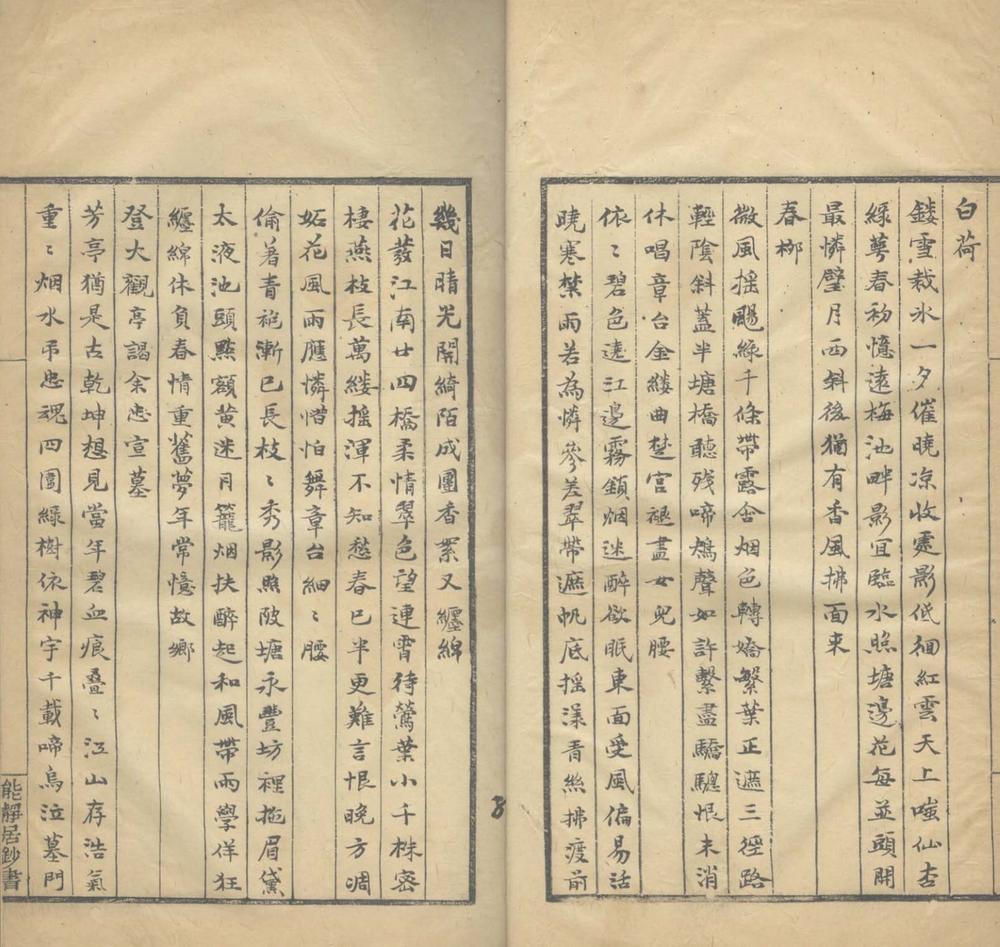 白荷
鏤雪栽冰一夕催曉凉收霧影低徊紅雲天上嗤仙杏
綠萼春初憶遠梅池畔影宜臨水照塘邊花每並頭開
最憐璧月西斜後猶有香風拂面來
春柳
微風搖颺綠千條帶露含烟色轉嬌繁葉正遮三徑路
輕陰斜蓋半塘橋聽殘啼鴂聲如許繫盡驕驄恨未消
休唱章台金縷曲楚宮褪盡女兒腰
依〻碧色遶江邊霧鎖烟迷醉欲眠東面受風偏易活
曉寒禁雨若為憐參差翠帶遮帆底搖漾青絲拂渡前
幾日晴光開綺陌成團香絮又纏綿
花發江南廿四橋柔情翠色望連霄待鶯葉小千株密
棲燕枝長萬縷搖渾不知愁春已半更難言恨晚方凋
妬花風雨應憐惜怕舞章台細〻腰
偷著青袍漸已長枝〻秀影照陂塘永豐坊裡拖眉黛
太液池頭點額黃迷月籠烟扶醉起和風帶雨學佯狂
纏綿休負春情重舊夢年常憶故鄉
登大觀亭謁余忠宣墓
芳亭猶是古乾坤想見當年碧血痕疊〻江山存浩氣
重〻烟水弔忠魂四圍綠樹依神宇千載啼烏泣墓門
能靜居鈔書